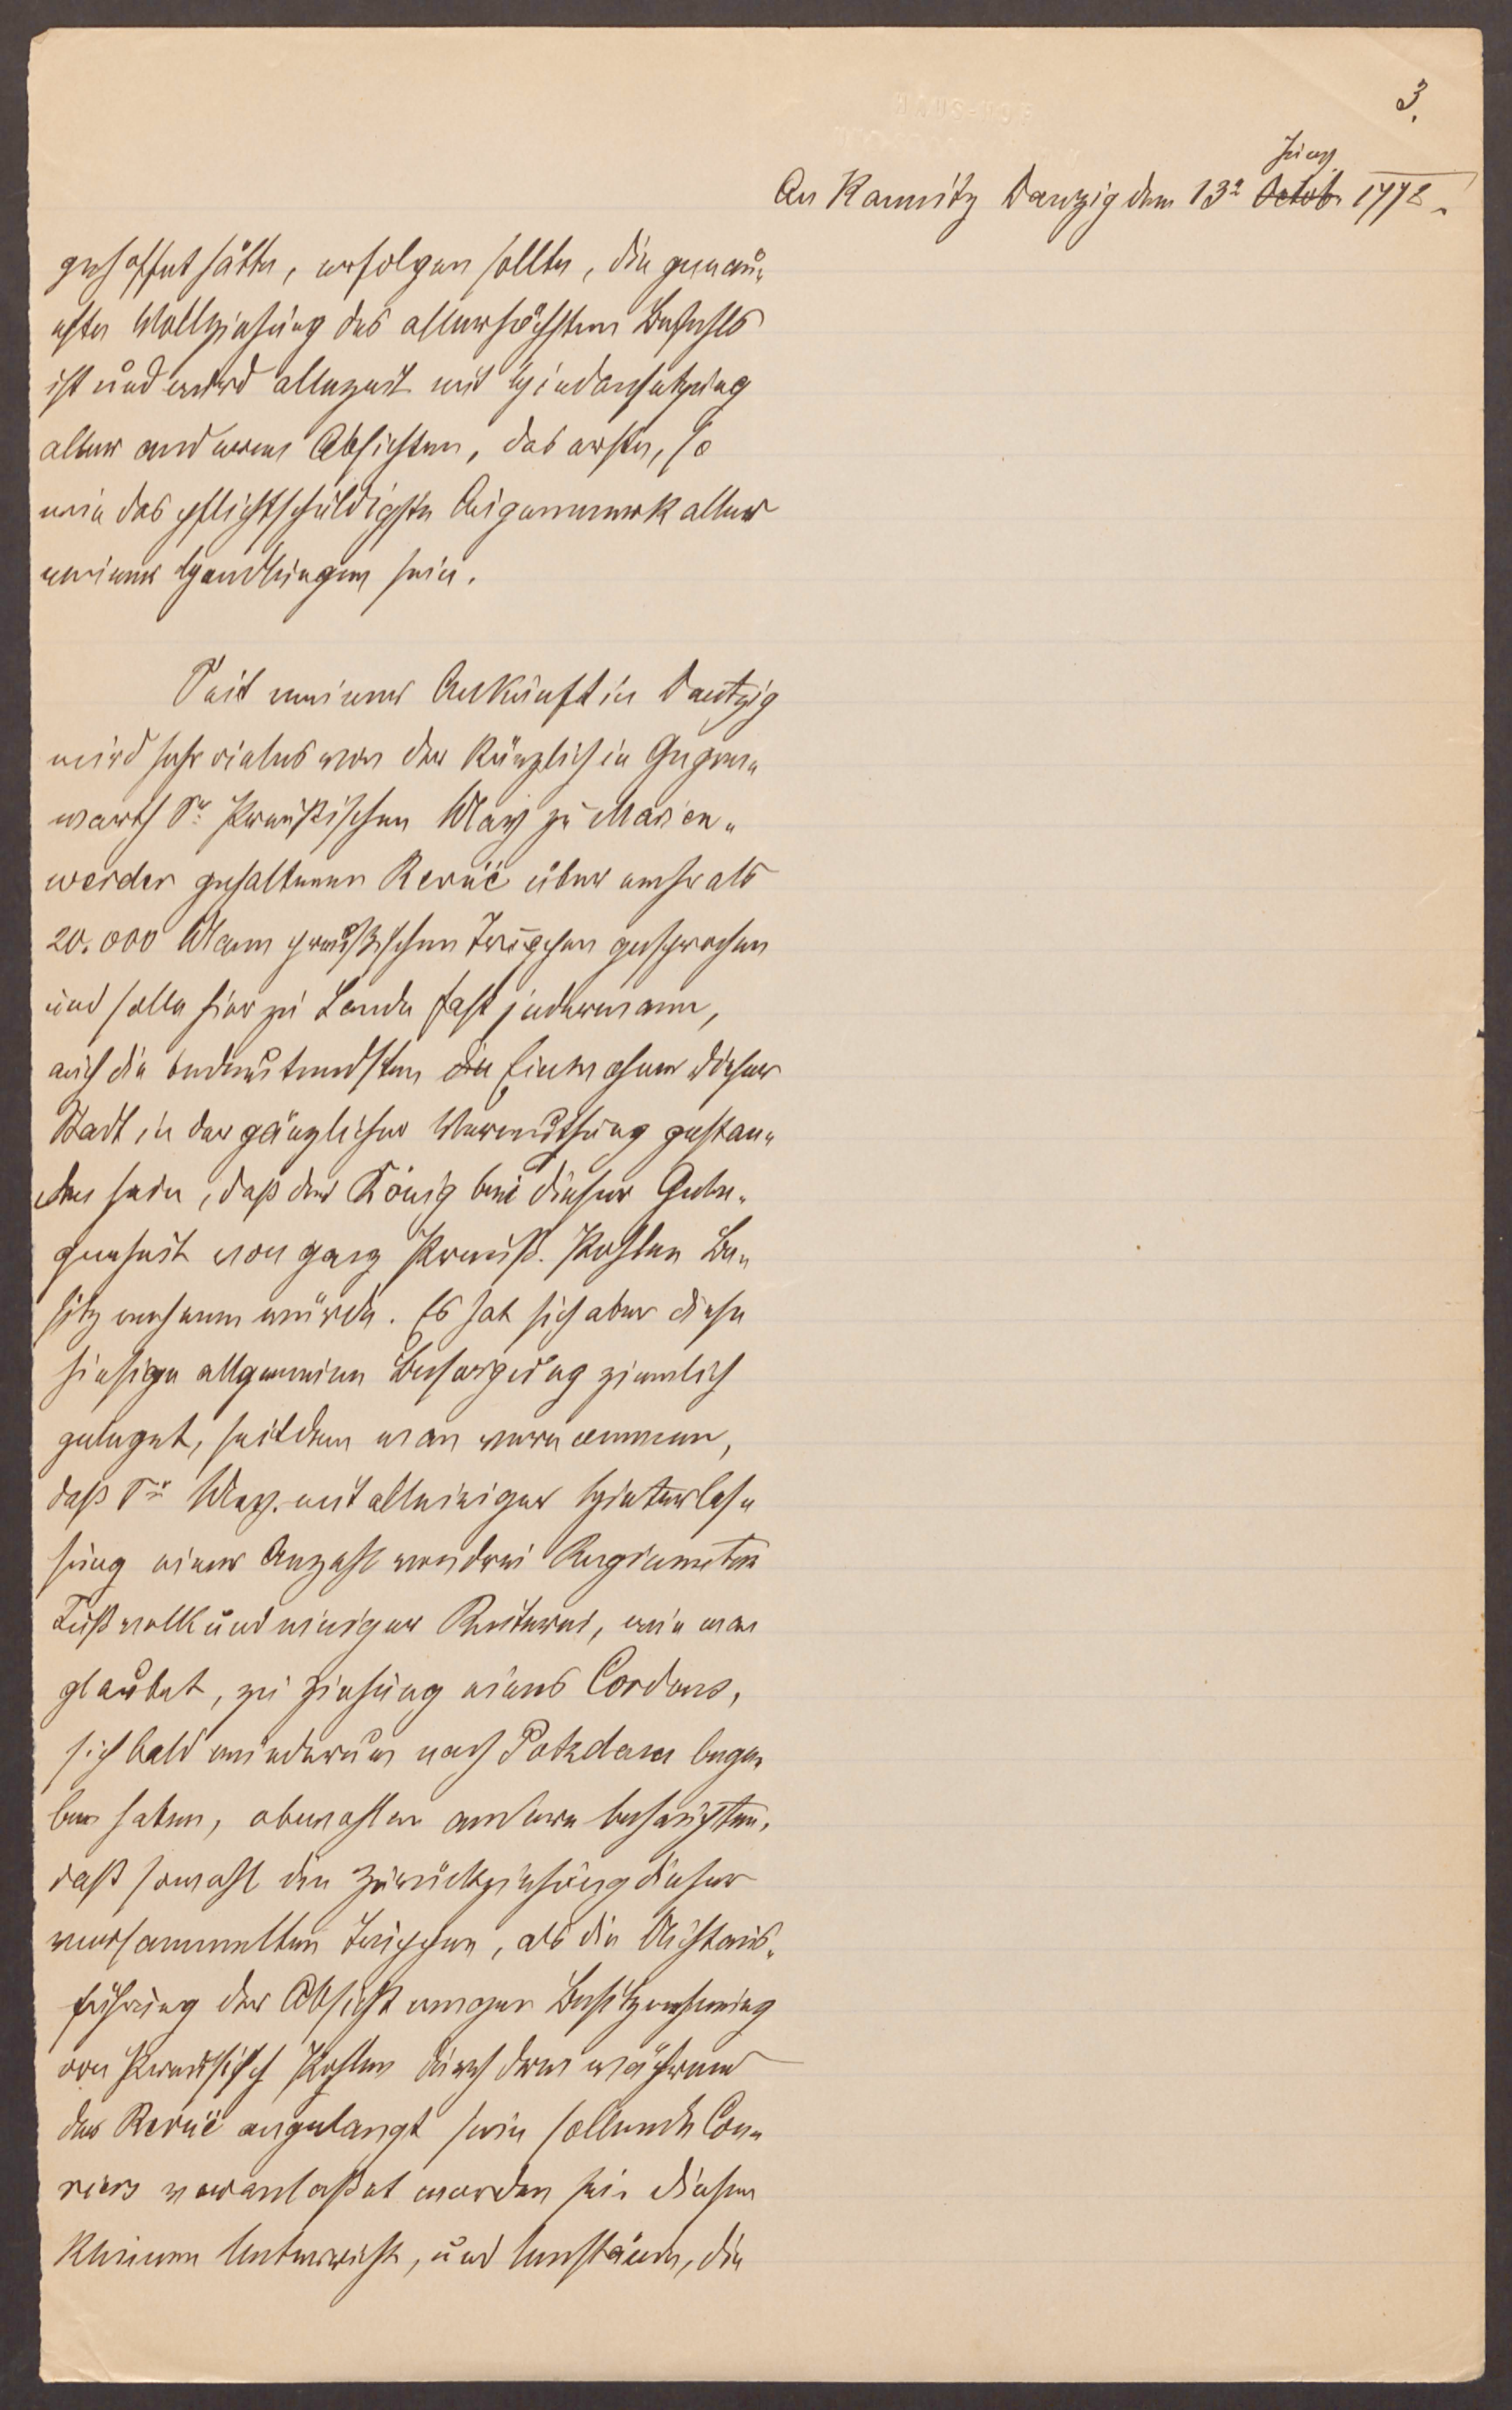 3.
Juny
An Kaunitz Danzig den 13ᵉ Octob. 1772.
gehoffet hätte, erfolgen sollte, die genau„
este Vollziehung des allerhöchsten Befehls
ist und wird allezeit mit Hindansetzung
aller anderen Absichten, das erste, so
wie das pflichtschuldigste Augenmerk aller
meiner Handlungen sein.
Seit meiner Ankunft in Dantzig
wird sehr vieles von der kürzlich in Gegen„
warth Sr. Preußischen May zu Marien„
werder gehaltenen Revüe über mehr als
20.000 Mann preußischen Truppen gesprochen
und solle hier zu Lande fast jedermann,
auch die bedeutendsten die Einwohner dieser
Stadt in der gänzlicher Vermuthung gestan„
den sein, daß der König bei dieser Gele„
genheit von ganz Preuß. Pohlen Be„
sitz nehmen würde. Es hat sich aber diese
hiesige allgemeine Besorgung ziemlich
geleget, seitdem man vernommen,
daß Se May. mit alleiniger Hinterlas„
sung einer Anzahl von drei Regimenten
Fußvolk und einiger Reiterei, wie man
glaubet, zu Ziehung eines Cordons,
sich bald wiederum nach Potzdam bege„
ben haben, obwohlen andere behaupten,
daß sowohl die Zurückziehung dieser
versammelten Truppen, als die Nichtaus„
führung der Absicht wegen Besitznehmung
von Preußisch Pohlen durch dem während
der Revüe angelangt sein sollende Cou„
riers veranlaßet worden sei. Diesen
kleinen Unterricht, und Umstände, die